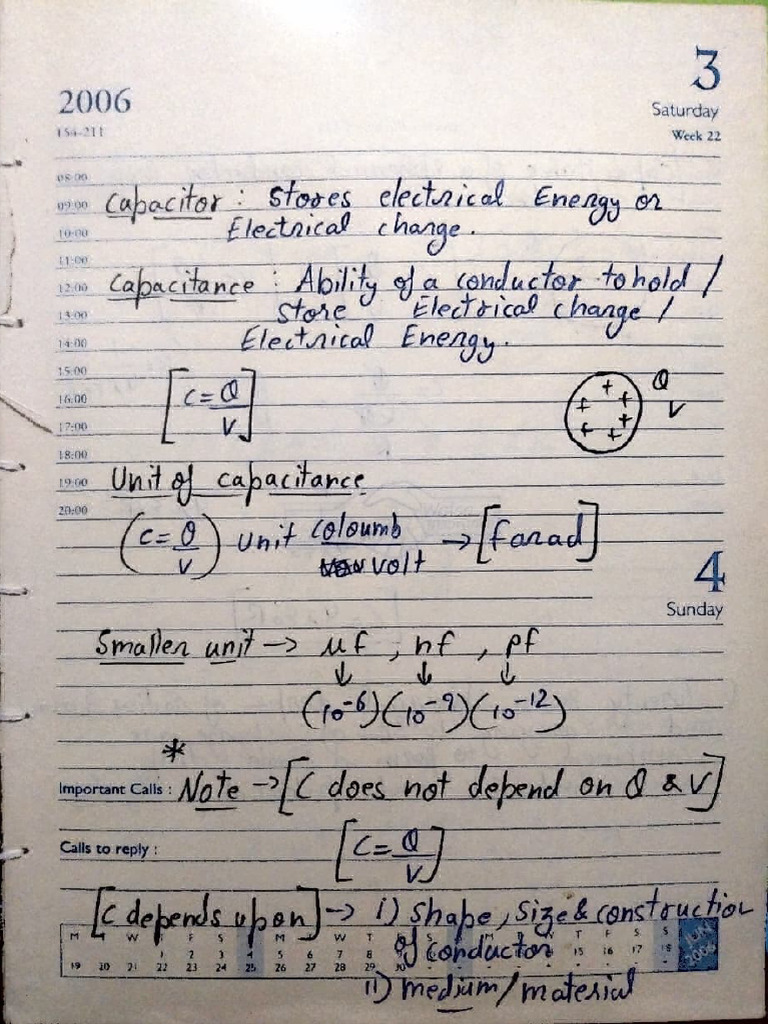 2006
154-211
3
Saturday
Week 22
08:00
09:00 Capacitor : Stores electrical Energy or
10:00 Electrical charge.
11:00
12:00 Capacitance : Ability of a conductor to hold /
13:00 Store Electrical charge /
14:00 Electrical Energy.
15:00
16:00 [C = Q/V] + + + + + + Q V
17:00
18:00
19:00 Unit of capacitance
20:00
(C = Q/V) Unit coloumb/volt → [farad]
4
Sunday
Smaller unit → μf , nf , pf
↓ ↓ ↓
(10⁻⁶)(10⁻⁹)(10⁻¹²)
*
Important Calls : Note → [C does not depend on Q & V]
Calls to reply : [C = Q/V]
[C depends upon] → i) Shape, Size & construction
of conductor
ii) medium/material
M T W T F S S M T W T F S S
19 20 21 22 23 24 25 26 27 28 29 30
JUN
2006